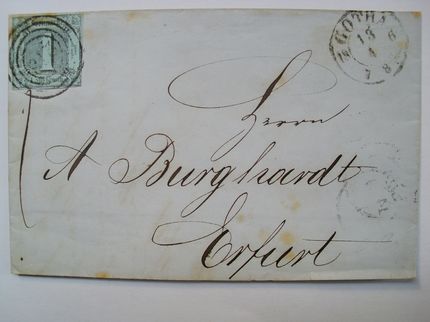 1
GOTHA
Herrn
A Burghardt
Erfurt